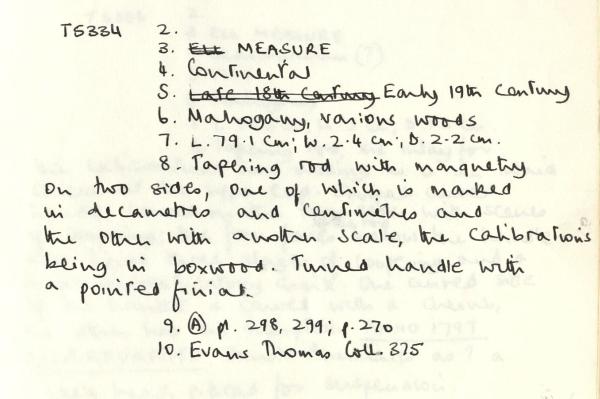 TS334 2.
3. ELL MEASURE
4. Continental
5. Late 18th Century Early 19th Century
6. Mahogany, various woods
7. L. 79.1 cm; W. 2.4 cm; D. 2.2 cm.
8. Tapering rod with marquetry
on two sides, one of which is marked
in decametres and centimetres and
the other with another scale, the calibrations
being in boxwood. Turned handle with
a pointed finial.
9. Ⓐ pl. 298, 299; p. 270
10. Evans Thomas Coll. 375